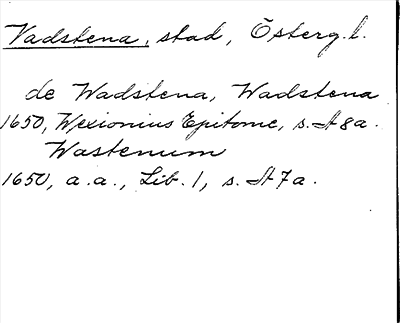 Vadstena, stad, Österg.l.
de Wadstena, Wadstena
1650, Wexionius Epitome, s. A 8a.
Wastenum
1650, a.a., Lib. 1, s. A 7a.